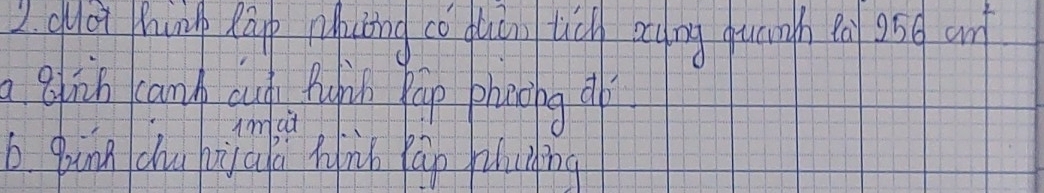 2. Một hình lập phương có diện tích xung quanh là 256 cm²
a. Tính cạnh của hình lập phương đó
b. Tính chu vi 1 mặt của hình lập phương